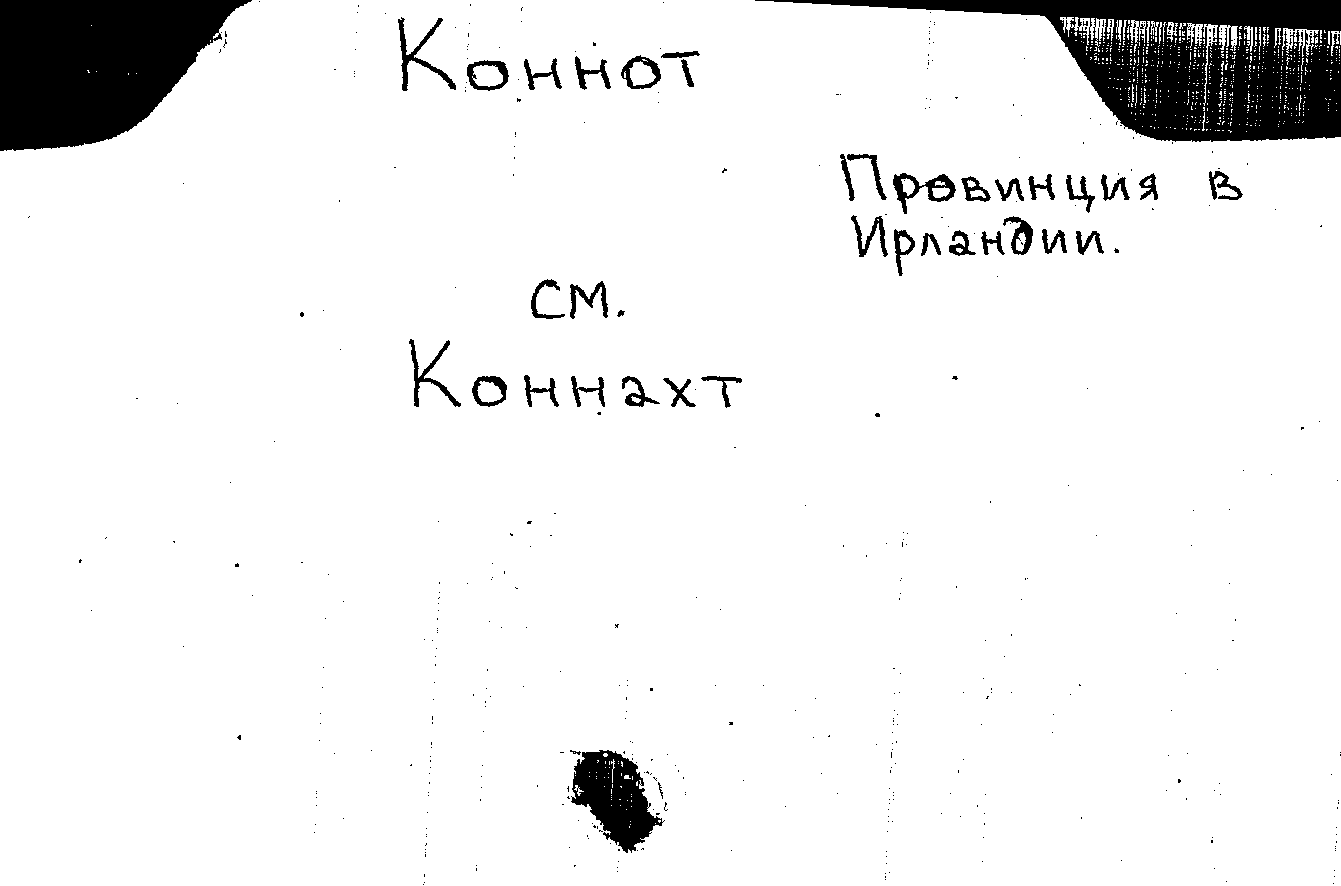 Коннот
Провинция в
Ирландии.
см.
Коннахт